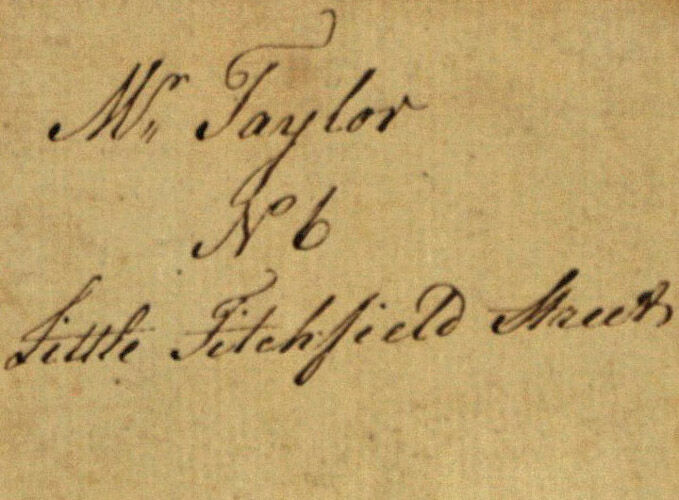 Mr Taylor
No 6
Little Titchfield Street